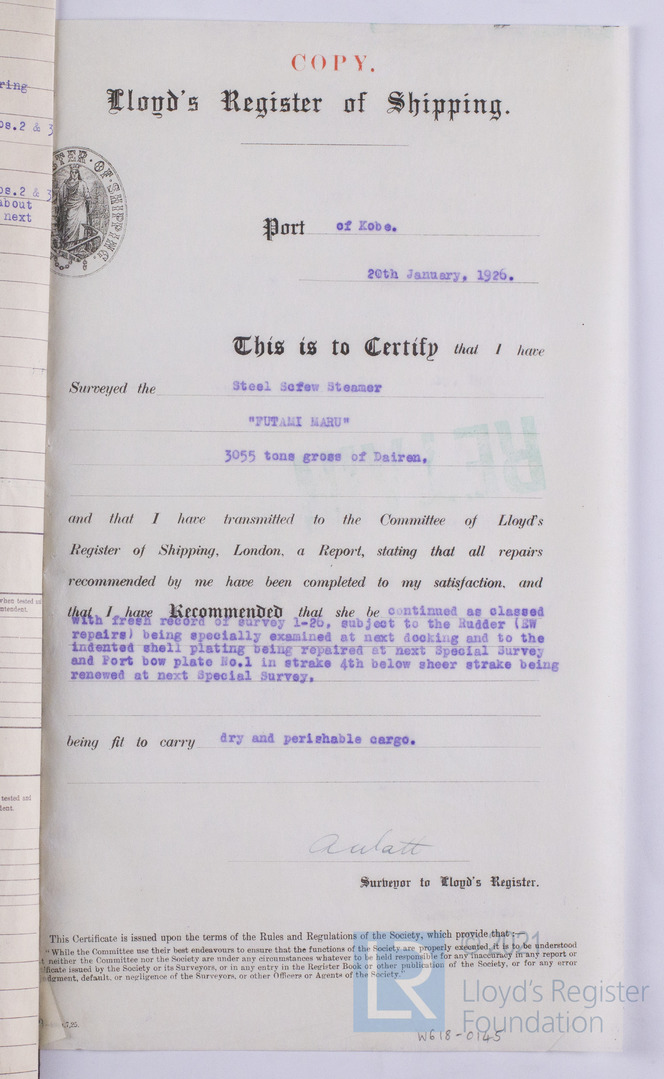 COPY.
Lloyd's Register of Shipping.
ring
os.2 & 3
os.2 &
about
next
Port of Kobe.
20th January, 1926.
This is to Certify that I have
Surveyed the Steel Screw Steamer
"FUTAMI MARU"
3055 tons gross of Dairen,
and that I have transmitted to the Committee of Lloyd's
Register of Shipping, London, a Report, stating that all repairs
recommended by me have been completed to my satisfaction, and
that I have Recommended that she be continued as classed
with fresh record of survey 1-26, subject to the Rudder (EW
repairs) being specially examined at next docking and to the
indented shell plating being repaired at next Special Survey
and Port bow plate No.1 in strake 4th below sheer strake being
renewed at next Special Survey,
being fit to carry dry and perishable cargo.
Surveyor to Lloyd's Register.
This Certificate is issued upon the terms of the Rules and Regulations of the Society, which provide that :—
"While the Committee use their best endeavours to ensure that the functions of the Society are properly executed, it is to be understood
neither the Committee nor the Society are under any circumstances whatever to be held responsible for any inaccuracy in any report or
ificate issued by the Society or its Surveyors, or in any entry in the Register Book or other publication of the Society, or for any error
dgment, default, or negligence of the Surveyors, or other Officers or Agents of the Society."
LR
Lloyd's Register
Foundation
W618-0145